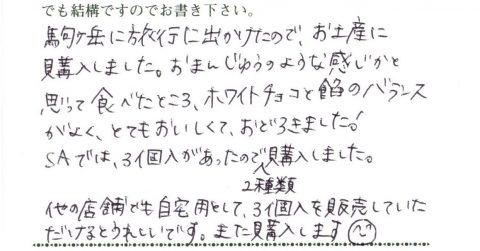 でも結構ですのでお書き下さい。
駒ヶ岳に旅行に出かけたので、お土産に
購入しました。おまんじゅうのような感じかと
思って食べたところ、ホワイトチョコと餡のバランス
がよく、とてもおいしくて、おどろきました!
SAでは、3個入があったので購入しました。
2種類
他の店舗でも自宅用として、3個入を販売していた
だけるとうれしいです。また購入します